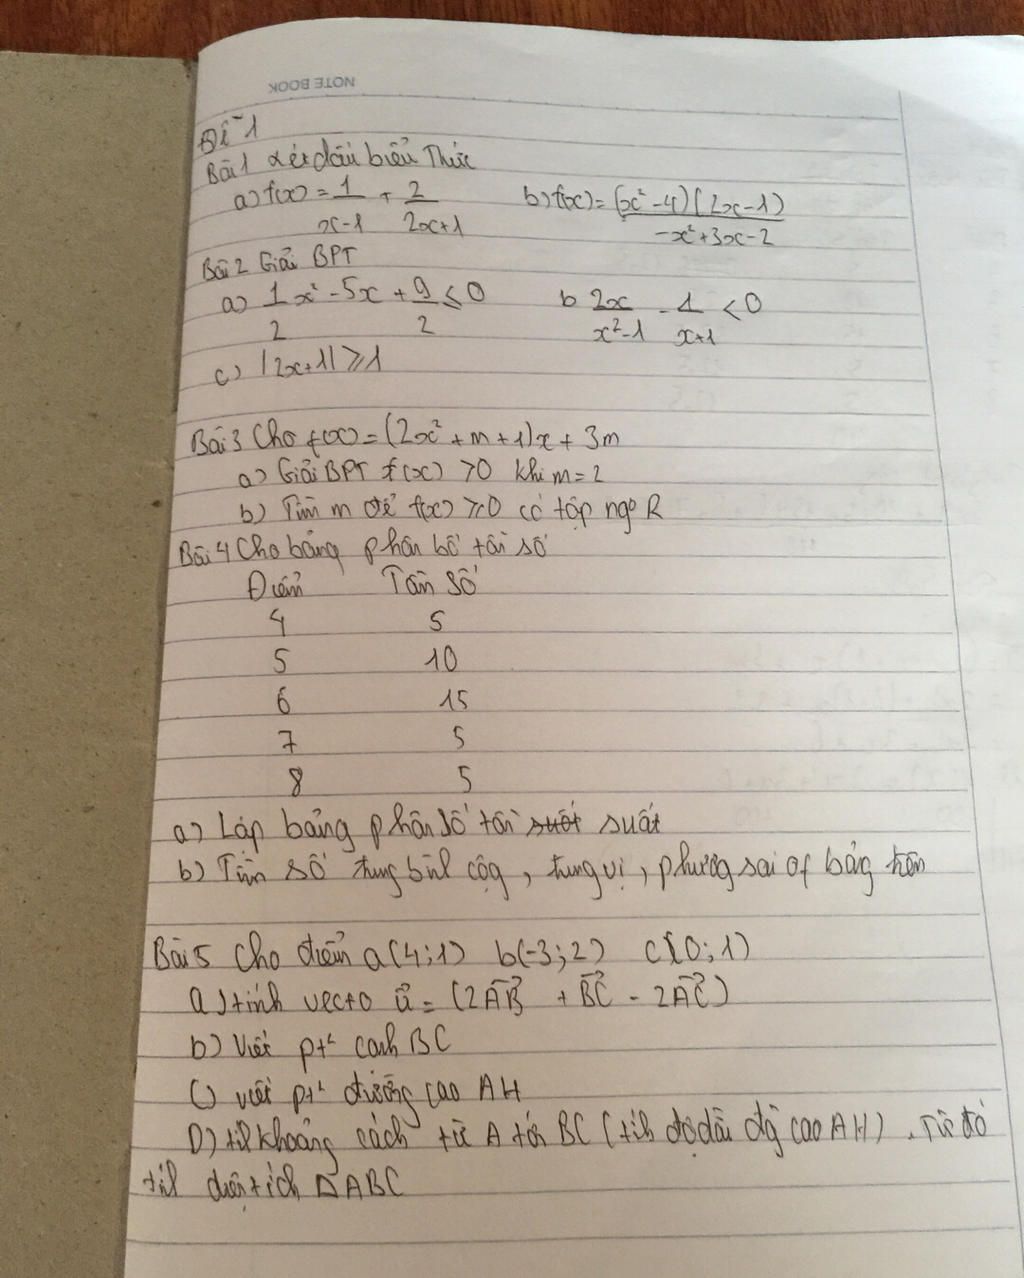 NOTE BOOK
Đề 1
Bài 1 xét dấu biểu Thức
a) f(x) = 1/(x-1) + 2/(2x+1) b) f(x) = (x²-4)(2x-1)/(-x²+3x-2)
Bài 2 Giải BPT
a) 1/2 x² - 5x + 9/2 ≤ 0 b 2x/(x²-1) - 1/(x+1) < 0
c) |2x+1| ≥ 1
Bài 3 Cho f(x) = (2x² + m + 1)x + 3m
a) Giải BPT f(x) > 0 khi m = 2
b) Tìm m để f(x) ≥ 0 có tập ngo R
Bài 4 Cho bảng phân bố tần số
Điểm Tần số
4 5
5 10
6 15
7 5
8 5
a) Lập bảng phân số tần suất suất
b) Tìm số trung bình cộg, trung vị, phương sai of bảng trên
Bài 5 Cho điểm a(4;1) b(-3;2) c(0;1)
a) tính vecto u⃗ = (2AB⃗ + BC⃗ - 2AC⃗)
b) Viết pt² cạnh BC
c) viết pt² đường cao AH
D) tíh khoảng cách từ A tới BC (tíh độ dài đg cao AH). Từ đó
tíh diện tích ΔABC